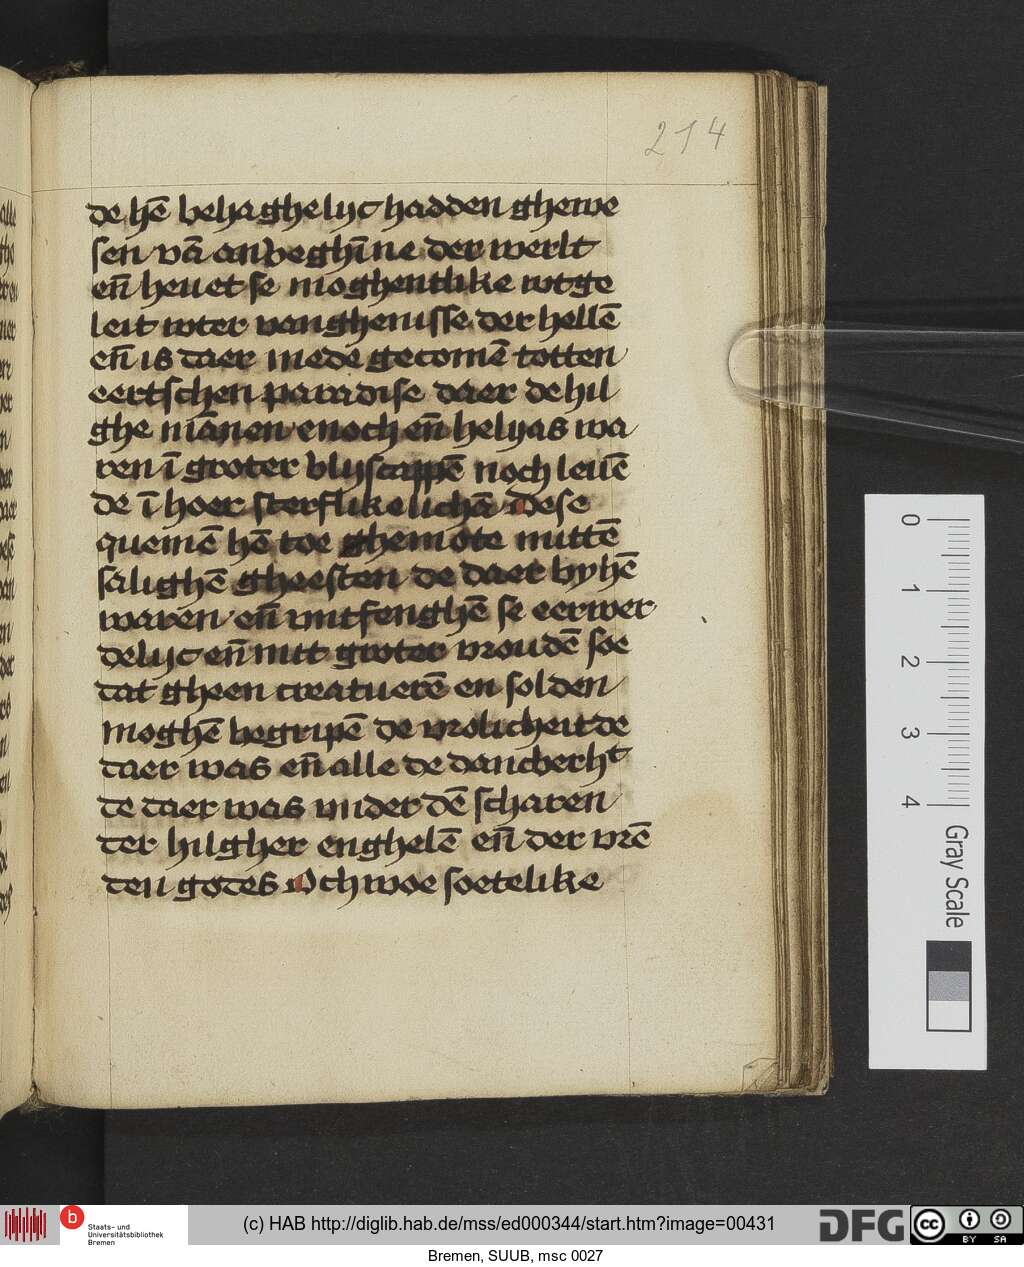 214
de hē behaghelijc hadden ghewe
sen vā anbeghīne der werlt
eñ heuet se moghentlike wtge
leit wter vanghenisse der hellē
eñ is daer mede gecomē totten
eertschen paradise daer de hil
ghe mānen enoch eñ helyas wa
ren ī groter blijscappē noch leuē
de ī hoer sterflike lichā Dese
quemē hē toe ghemote mittē
salighē gheesten de daer by hē
waren eñ vntfenghē se eerwer
delijc eñ mit groter vroudē soe
dat gheen creatuerē en solden
moghē begripē de vrolicheit de
daer was eñ alle de dancberhᵗ
de daer was vnder dē scharen
der hilgher enghelē eñ der vrē
den godes Och woe soetelike
0
1
2
3
4
Gray Scale
b
Staats- und
Universitätsbibliothek
Bremen
(c) HAB http://diglib.hab.de/mss/ed000344/start.htm?image=00431
DFG
cc
BY SA
Bremen, SUUB, msc 0027